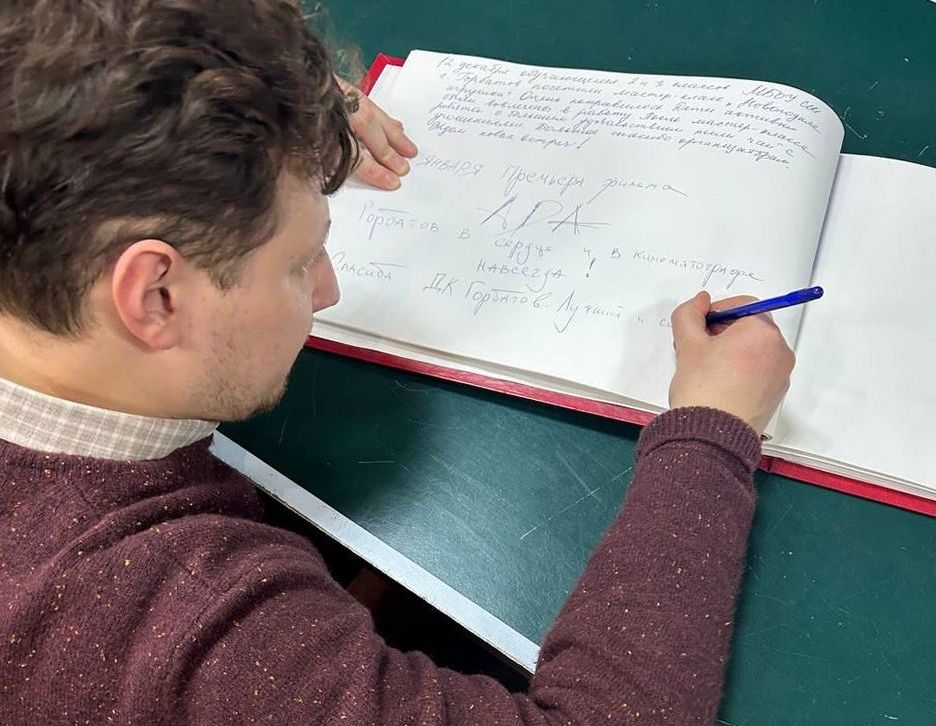 12 декабря обучающиеся 2 и 3 классов МБОУ СШ
г. Горбатов посетили мастер класс „Новогодняя
игрушка". Очень понравилось. Ребята активно
были вовлечены в работу. После мастер-класса
ребята с большим удовольствием пили чай с
угощениями. Большое спасибо организаторам.
Ждём новых встреч!
ЯНВАРЯ Премьера фильма
АРА
Горбатов в сердце и в кинематографе
навсегда!
Спасибо ДК Горбатов. Лучший и